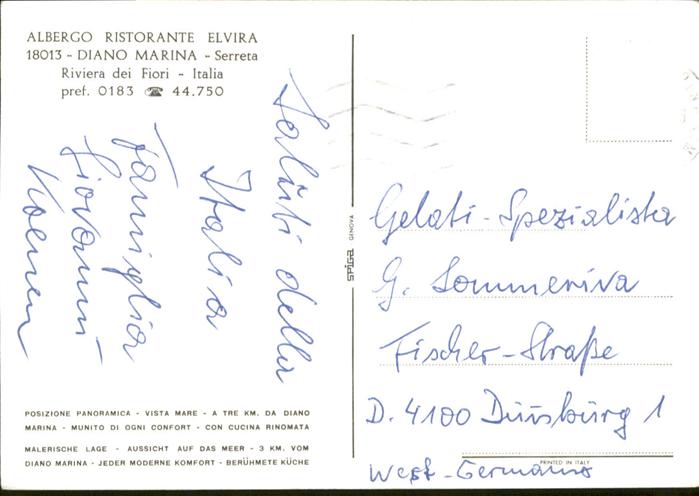 ALBERGO RISTORANTE ELVIRA
18013 - DIANO MARINA - Serreta
Riviera dei Fiori - Italia
pref. 0183 ☎ 44.750
Saluti della
Italia
Famiglia
Giovanni
Koenen
POSIZIONE PANORAMICA - VISTA MARE - A TRE KM. DA DIANO
MARINA - MUNITO DI OGNI CONFORT - CON CUCINA RINOMATA
MALERISCHE LAGE - AUSSICHT AUF DAS MEER - 3 KM. VOM
DIANO MARINA - JEDER MODERNE KOMFORT - BERÜHMETE KÜCHE
SPIGA GENOVA
Gelati-Spezialista
G. Sommeriva
Fischer-Straße
D. 4100 Duisburg 1
West-Germania
PRINTED IN ITALY